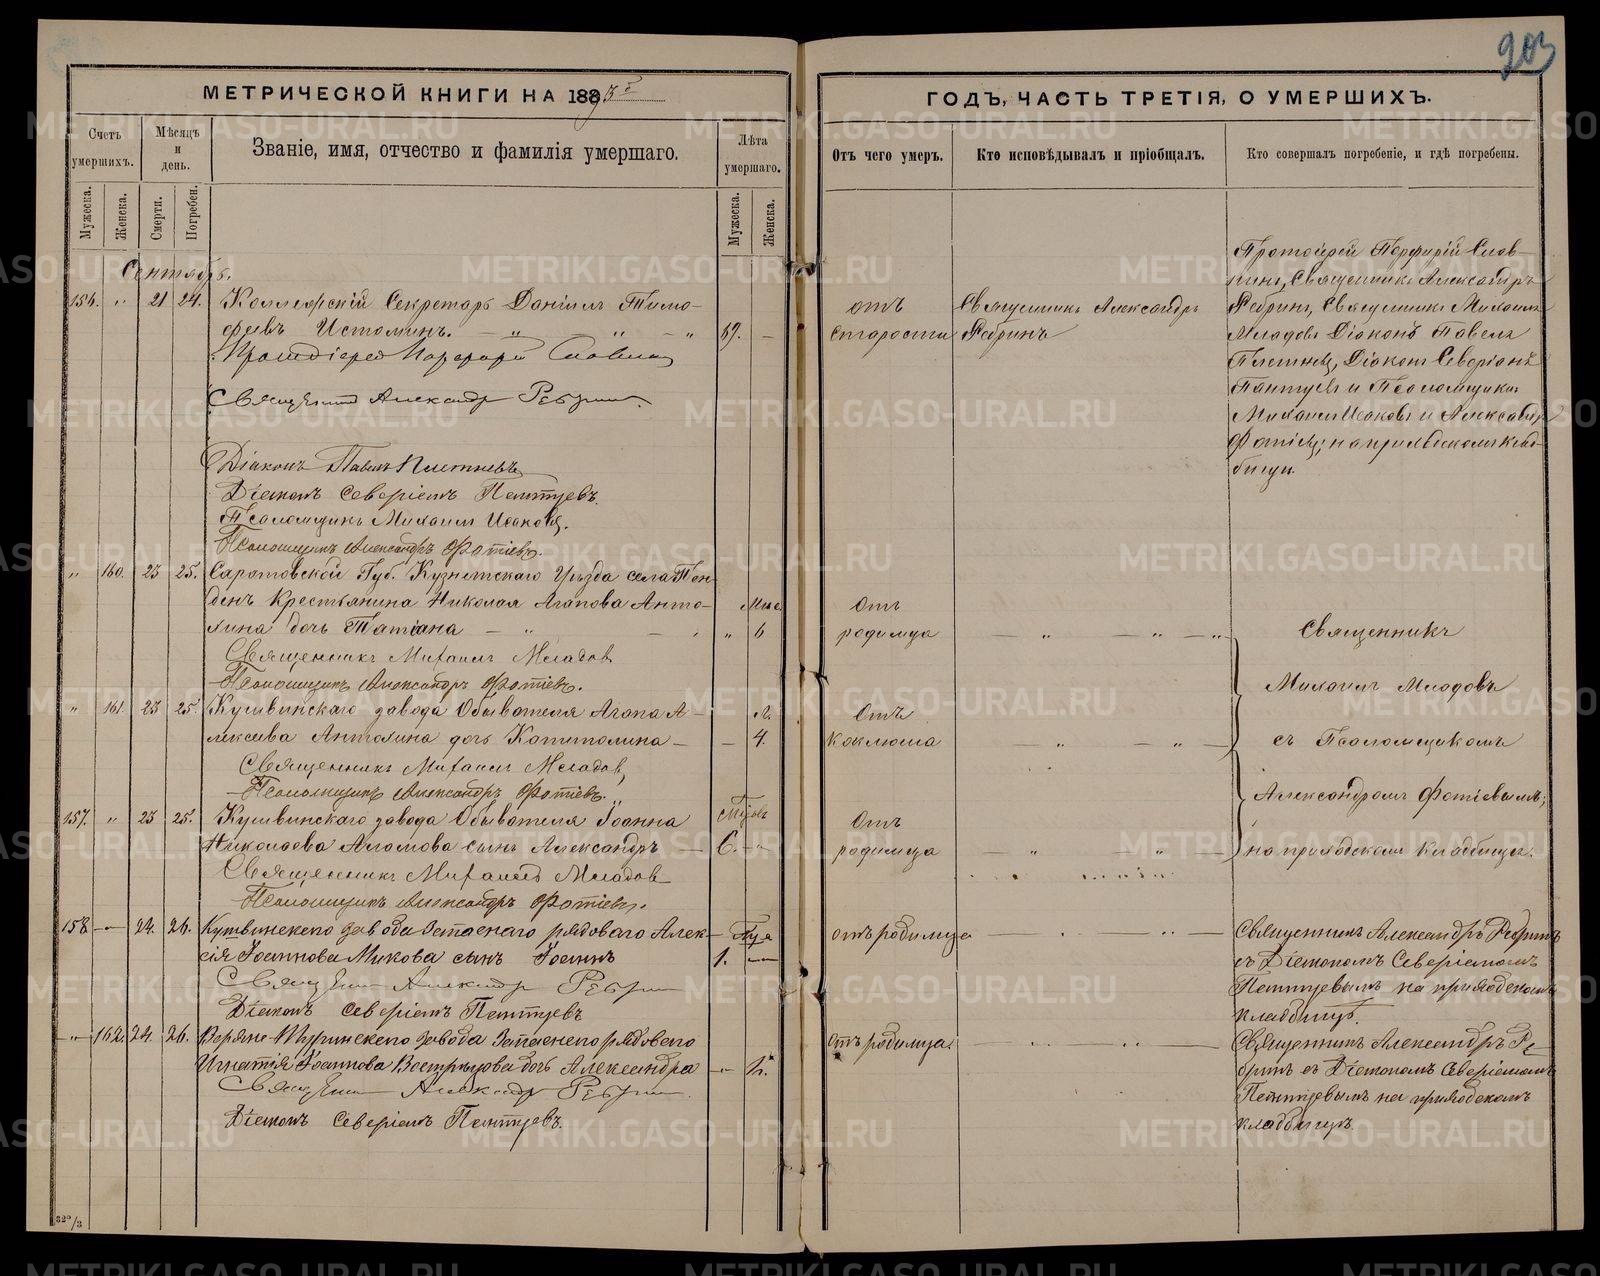 203
МЕТРИЧЕСКОЙ КНИГИ НА 1883
ГОДЪ, ЧАСТЬ ТРЕТІЯ, О УМЕРШИХЪ.
Счетъ умершихъ.
Мѣсяцъ и день.
Званіе, имя, отчество и фамилія умершаго.
Лѣта умершаго.
Отъ чего умеръ.
Кто исповѣдывалъ и пріобщалъ.
Кто совершалъ погребеніе, и гдѣ погребены.
Мужеска.
Женска.
Смерти.
Погребен.
Мужеска.
Женска.
Сентябрь.
156. " 21 24.
Коллежскій Секретарь Даніилъ Тимо-
феевъ Истоминъ. — " — " — "
Протоіерей Порфирій Словнинъ
Священникъ Александръ Ребринъ
Діаконъ Павелъ Плотневъ
Діаконъ Северіанъ Пантуевъ.
Псаломщикъ Михаилъ Исаковъ.
Псаломщикъ Александръ Фотіевъ.
67. —
отъ
старости
Священникъ Александръ
Ребринъ
Протоіерей Порфирій Слов-
нинъ, Священникъ Александръ
Ребринъ, Священникъ Михаилъ
Младовъ Діаконъ Павелъ
Плетневъ, Діаконъ Северіанъ
Пантуевъ и Псаломщики
Михаилъ Исаковъ и Александръ
Фотіевъ; на приходскомъ клад-
бищи.
" 160. 23 25.
Саратовской Губ. Кузнетскаго Уѣзда села
Крестьянина Николая Агапова Анто-
хина дочь Татіана — "
Священникъ Михаилъ Младов
Псаломщикъ Александръ Фотіевъ.
Мѣс.
" 6
Отъ
родимца
Священникъ
" 161. 23 25.
Кушвинскаго завода Обывателя Агапа А-
лексеева Антохина дочь Капитолина —
Священникъ Михаилъ Младов,
Псаломщикъ Александръ Фотіевъ.
Л.
— 4.
Отъ
коклюша
Михаилъ Младовъ
съ Псаломщикомъ
157. " 23 25.
Кушвинскаго завода Обывателя Іоанна
Николаева сынъ Александръ —
Священникъ Михаилъ Младов
Псаломщикъ Александръ Фотіевъ.
6. "
Отъ
родимца
Александромъ Фотіевымъ;
на приходскомъ кладбищи.
158 — 24. 26.
Кушвинскаго завода Запаснаго рядоваго Алек-
сія Іоаннова Микова сынъ Іоаннъ
Священникъ Александръ Ребринъ
Діаконъ Северіанъ Пантуевъ
1. —
отъ родимца
Священникъ Александръ Ребринъ
съ Діакономъ Северіаномъ
Пантуевымъ на приходскомъ
кладбищѣ.
— 162. 24. 26.
Верхне-Туринскаго завода Запаснаго рядоваго
Игнатія Іоаннова Вострецова дочь Александра
Священникъ Александръ Ребринъ
Діаконъ Северіанъ Пантуевъ.
отъ родимца.
Священникъ Александръ Ре-
бринъ съ Діакономъ Северіаномъ
Пантуевымъ на приходскомъ
кладбищѣ.
METRIKI.GASO-URAL.RU